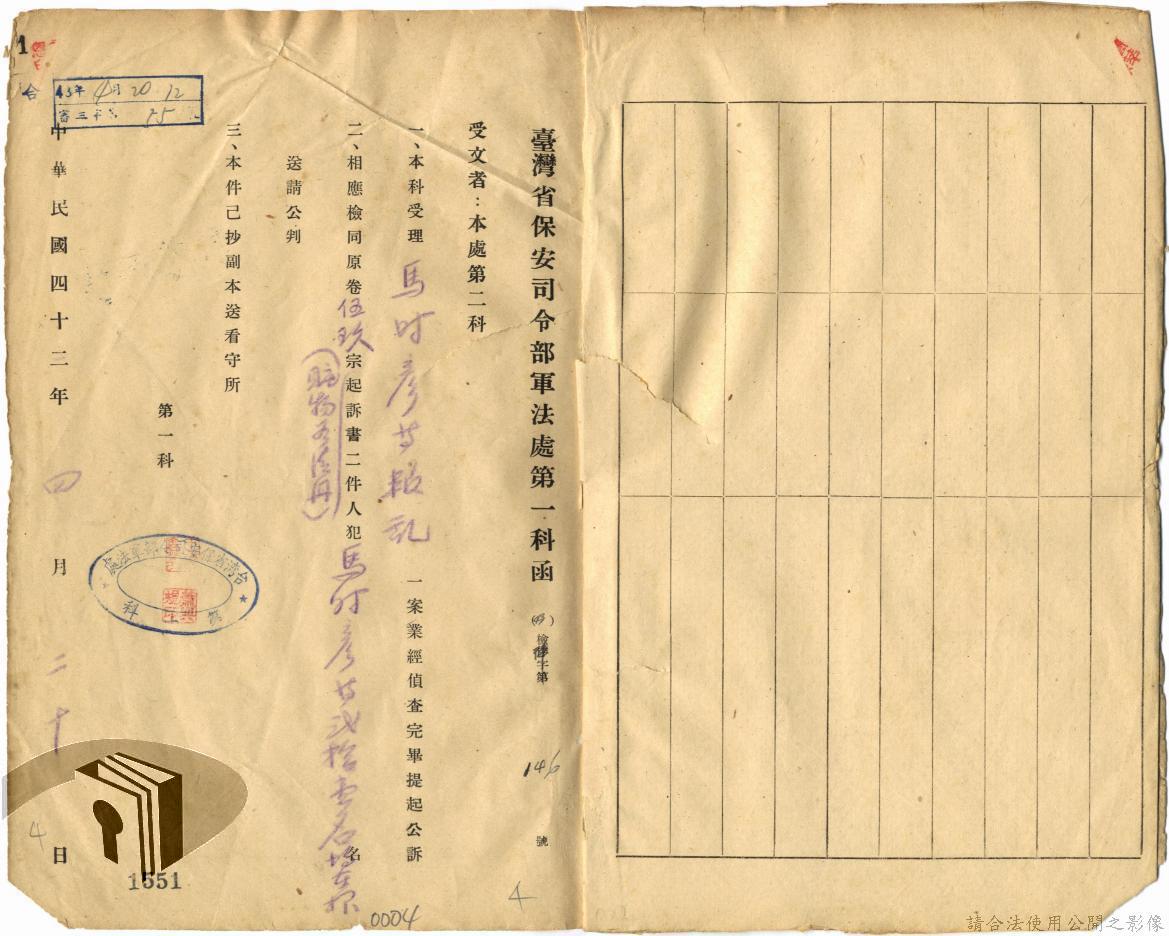 臺灣省保安司令部軍法處第一科函
(43)檢字第146號
受文者：本處第二科
一、本科受理馬時彥等叛亂一案業經偵查完畢提起公訴
二、相應檢同原卷伍玖宗起訴書二件人犯馬時彥等貳拾壹名
送請公判
三、本件已抄副本送看守所
第一科
中華民國四十三年四月二十日
43年4月20 12
55
台灣省保安司令部軍法處
科
1
合
4
1551
0004
4
請合法使用公開之影像